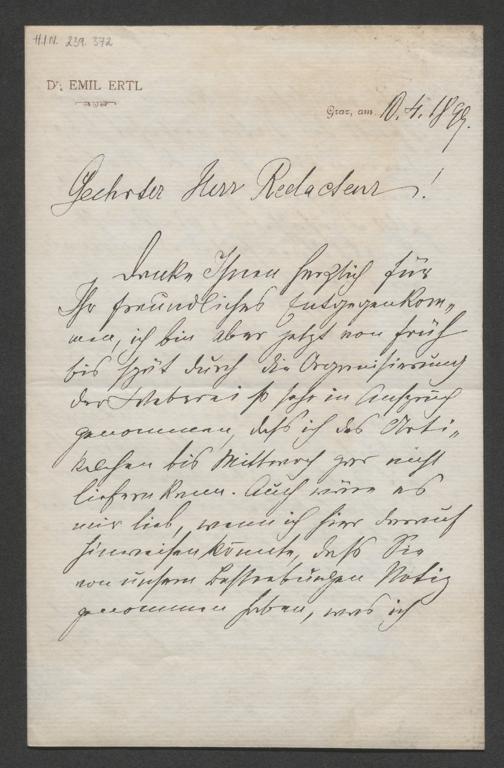 H.I.N. 239.372
Dr. EMIL ERTL
Graz, am 10. 4. 1899.
Geehrter Herr Redacteur!
Danke Ihnen herzlich für
Ihr freundliches Entgegenkom-
men, ich bin aber jetzt von früh
bis spät durch die Organisierung
der Weberei so sehr in Anspruch
genommen, daß ich das Arti-
kelchen bis Mittwoch gar nicht
liefern kann. Auch wäre es
mir lieb, wenn ich hier darauf
hinweisen könnte, daß Sie
von unsern Bestrebungen Notiz
genommen haben, was ich